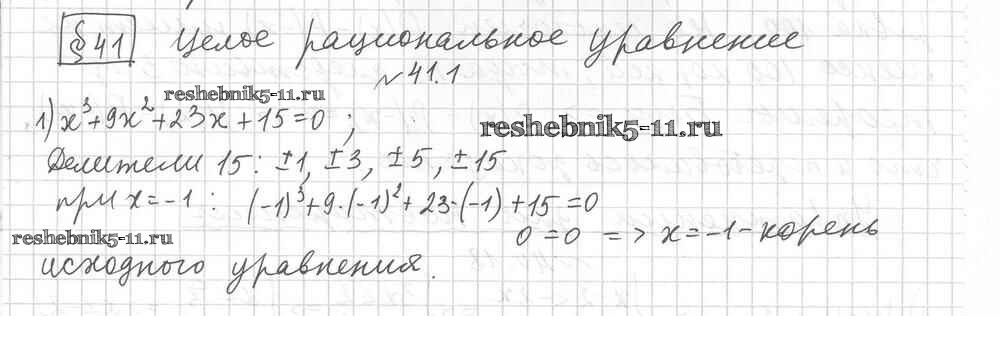 §41 Целое рациональное уравнение
№41.1
reshebnik5-11.ru
1) x³+9x²+23x+15=0;
reshebnik5-11.ru
Делители 15: ±1, ±3, ±5, ±15
при x=-1: (-1)³+9·(-1)²+23·(-1)+15=0
reshebnik5-11.ru
0=0 => x=-1-корень
исходного уравнения.